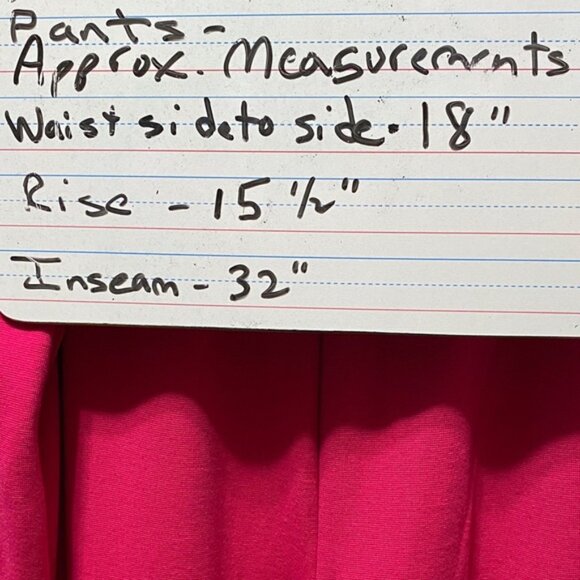 Pants -
Approx. Measurements
Waist side to side - 18"
Rise - 15 1/2"
Inseam - 32"